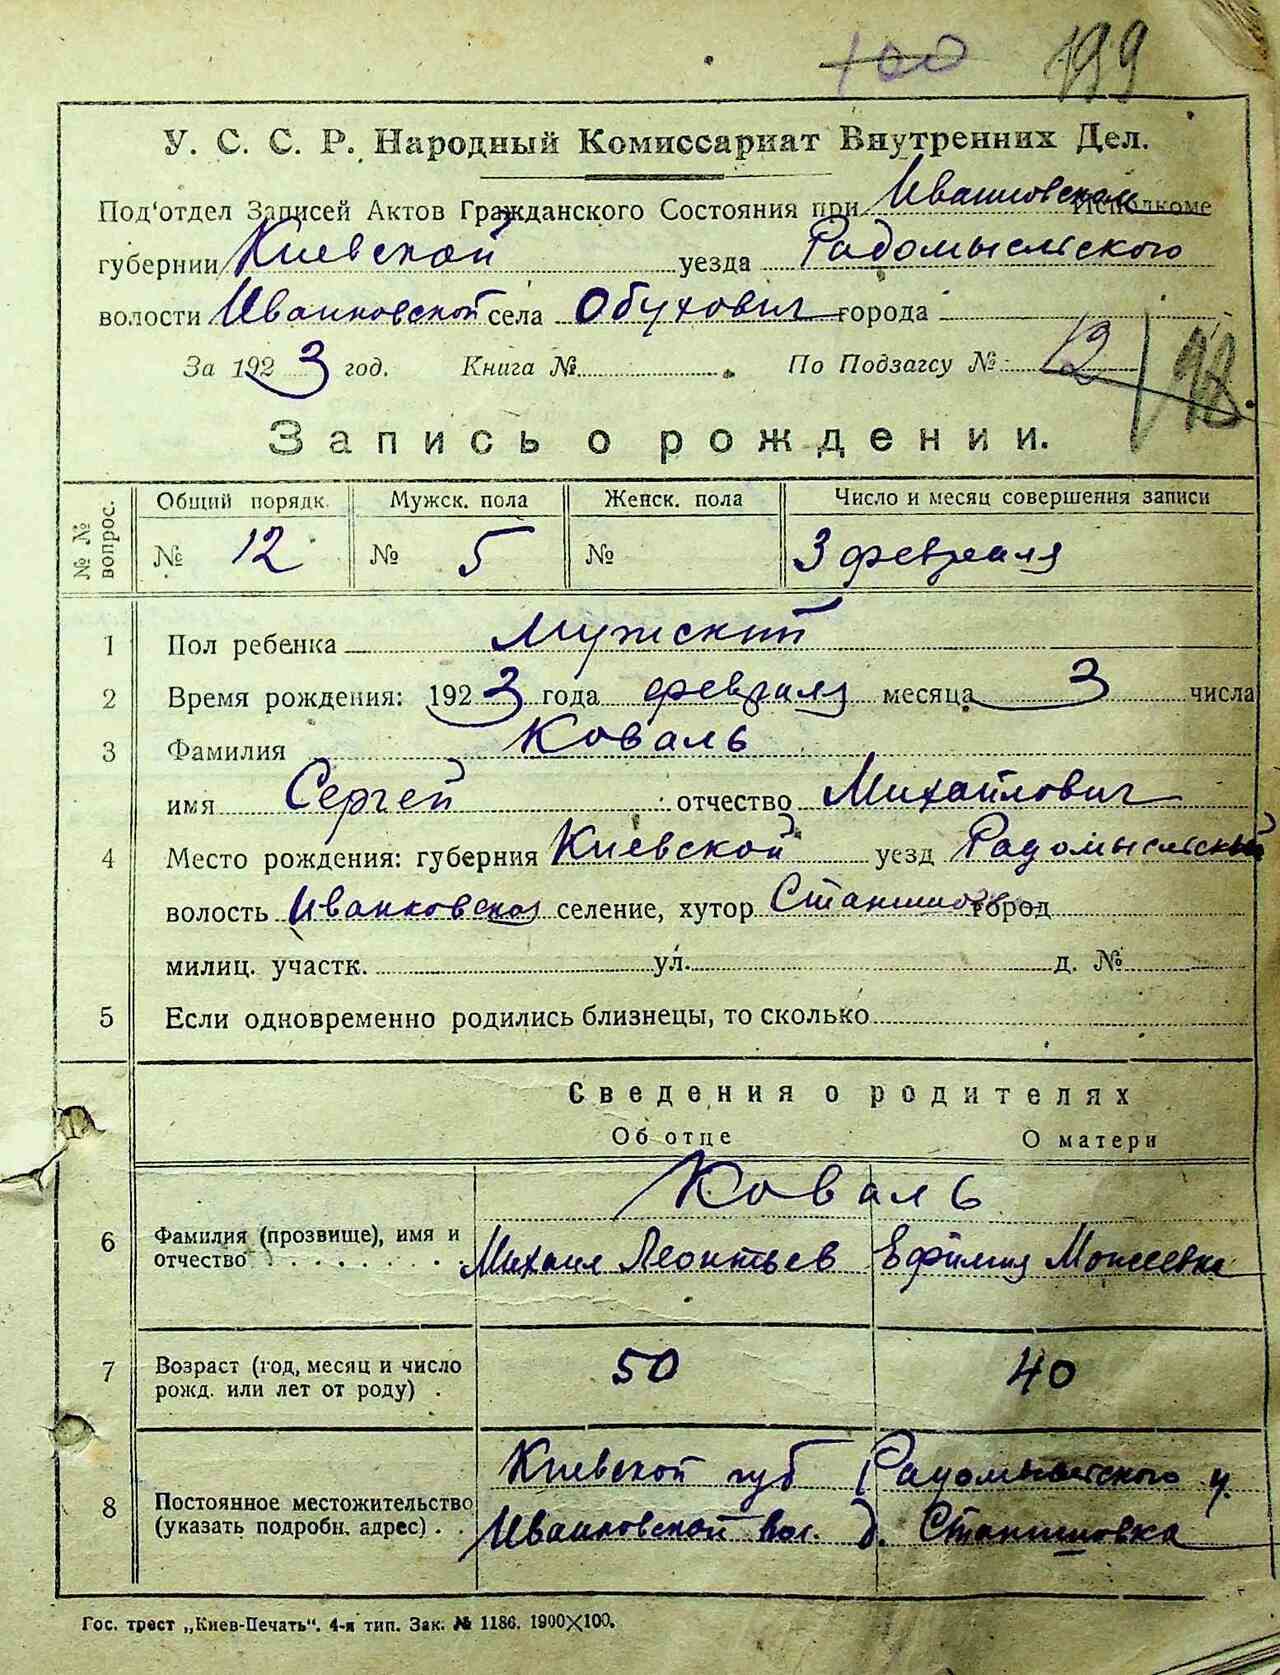 100 199
У. С. С. Р. Народный Комиссариат Внутренних Дел.
Под'отдел Записей Актов Гражданского Состояния при Иванковском Исполкоме
губернии Киевской уезда Радомысльского
волости Иванковской села Обухович города
За 1923 год. Книга № По Подзагсу № 12 198
Запись о рождении.
№ № вопрос. Общий порядк. Мужск. пола Женск. пола Число и месяц совершения записи
№ 12 № 5 № 3 февраля
1 Пол ребенка Мужский
2 Время рождения: 1923 года февраля месяца 3 числа
3 Фамилия Коваль
имя Сергей отчество Михайлович
4 Место рождения: губерния Киевской уезд Радомысльский
волость Иванковская селение, хутор город
милиц. участк. ул. д. №
5 Если одновременно родились близнецы, то сколько
Сведения о родителях
Об отце О матери
Коваль
6 Фамилия (прозвище), имя и отчество Михаил Леонтьев Ефимия Моисеевна
7 Возраст (год, месяц и число рожд. или лет от роду) 50 40
Киевской губ Радомысльского у.
8 Постоянное местожительство (указать подробн. адрес) Иванковской вол. д.
Гос. трест „Киев-Печать“. 4-я тип. Зак. № 1186. 1900×100.